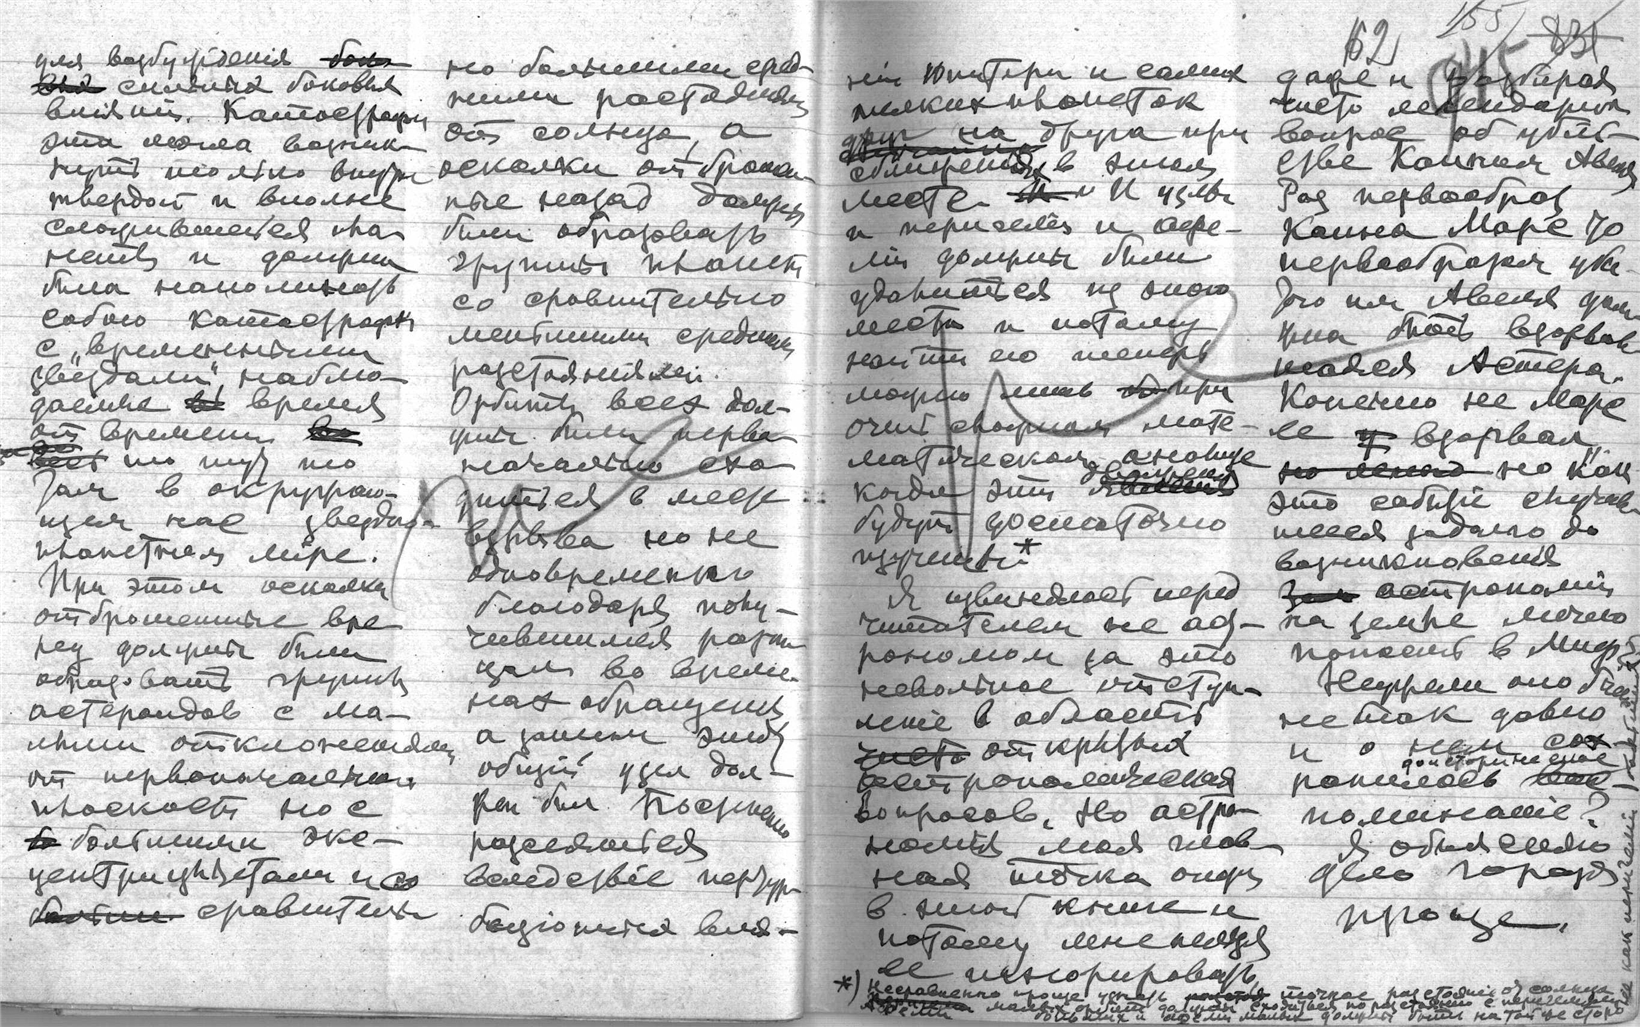 для возбужденія
сильных боковых
вліяній. Катастрофа
эта могла возник-
нуть только внутри
твердой и вполне
сложившейся пла-
неты и должна
была напоминать
собою катастрофы
с „временными
звездами", наблю-
даемые время
от времени
то тут то
там в окружаю-
щем нас звездно-
планетном мірѣ.
При этом осколки
отброшенные впе-
ред должны были
образовать группы
астероидов с ма-
лыми отклоненіями
от первоначальной
плоскости но с
большими экс-
центрицитетами и со
сравнительно
но большими сред-
ними растояніями
от солнца, а
осколки отброшен-
ные назад должны
были образовать
группы планет
со сравнительно
меньшими средними
растояніями.
Орбиты всех дол-
жны были перво-
начально схо-
диться в месте
взрыва но не
одновременно
благодаря полу-
чившимся разни-
цам во време-
нах обращенія
а затем этот
общій узел дол-
жен был постепенно
разселяться
вследствіе пертур-
баціонных влія-
ній Юпитера и самих
мелких планеток
друг на друга при
сближеніях в этом
месте. И узлы
и перигеліи и афе-
ліи должны были
удалиться из этого
места и потому
найти его теперь
можно лишь при
очень сложном мате-
матическом анализе
когда эти движенія
будут достаточно
изучены*
Я извиняюсь перед
читателем не аст-
рономом за это
невольное отступ-
леніе в область
открытых
астрономических
вопросов. Но астро-
номія моя глав-
ная точка опоры
в этой книге и
потому мне нельзя
ее игнорировать
62
155
831
даже и разбирая
чисто легендарный
вопрос об убій-
стве Каином Авеля
Раз первообраз
Каина Марс то
первообразом уби-
того им Авеля долж-
на быть взорвав-
шаяся Астера.
Конечно не Марс
ее взорвал,
но как
это событіе случив-
шееся задолго до
возникновенія
астрономіи
на земле могло
попасть в Миф?
Неужели оно было
не так давно
и о нем сох-
ранилось доисторическое
поминаніе?
Я объясняю
дело гораздо
проще.
*) Несравненно проще узнать точное разстояніе от солнца